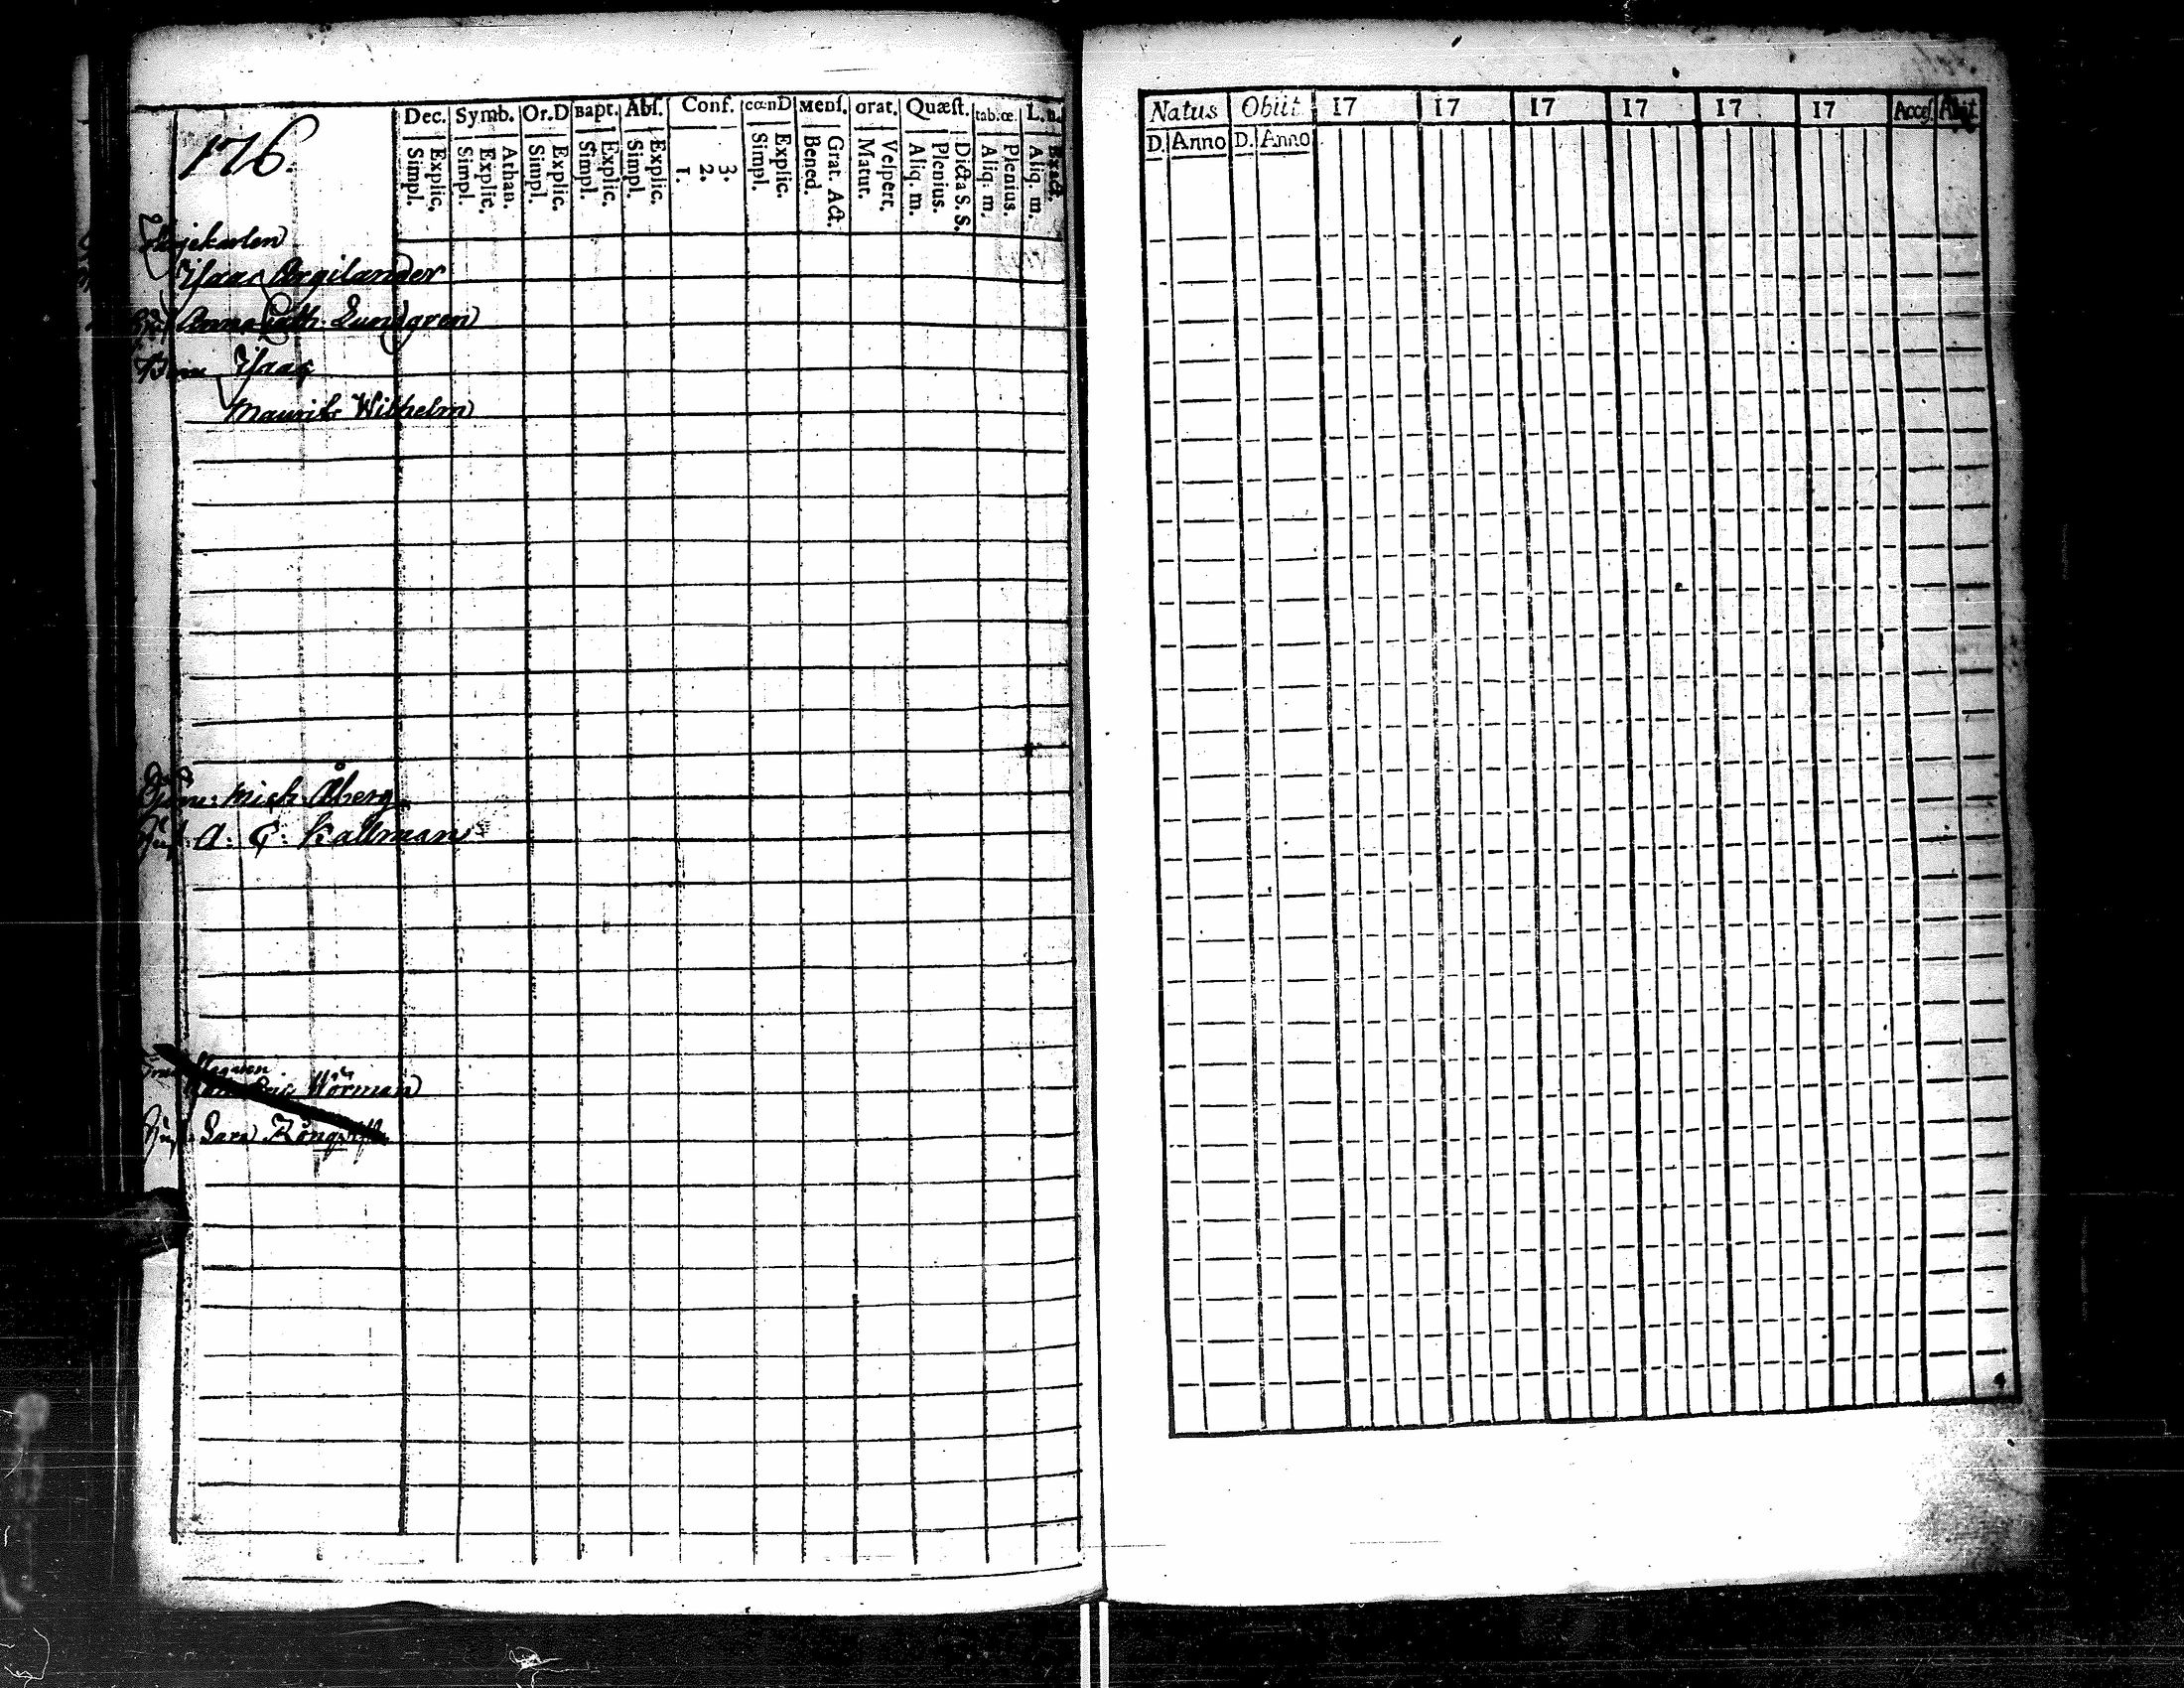 176.
Dec. Symb. Or.D Bapt. Abſ. Conf. cœnD Menſ. orat. Quæſt. tab:œ. L. n.
Explic. Simpl. Athan. Explic. Simpl. Explic. Simpl. Explic. Simpl. Explic. Simpl. 3. 2. 1. Explic. Simpl. Grat. Act. Bened. Veſpert. Matut. Dicta S. S. Plenius. Aliq. m. Plenius. Aliq. m. Exact. Aliq. m.
Iſaac Argilander
Anna Cath: Lundgren
Barn Iſaac
Maurits Wilhelm
Mich. Åberg
Huſt. A: C: Kallman
Wörman
Huſt: Sara Rönqviſt
Natus Obiit 17 17 17 17 17 17 Acceſ. Abiit
D. Anno D. Anno